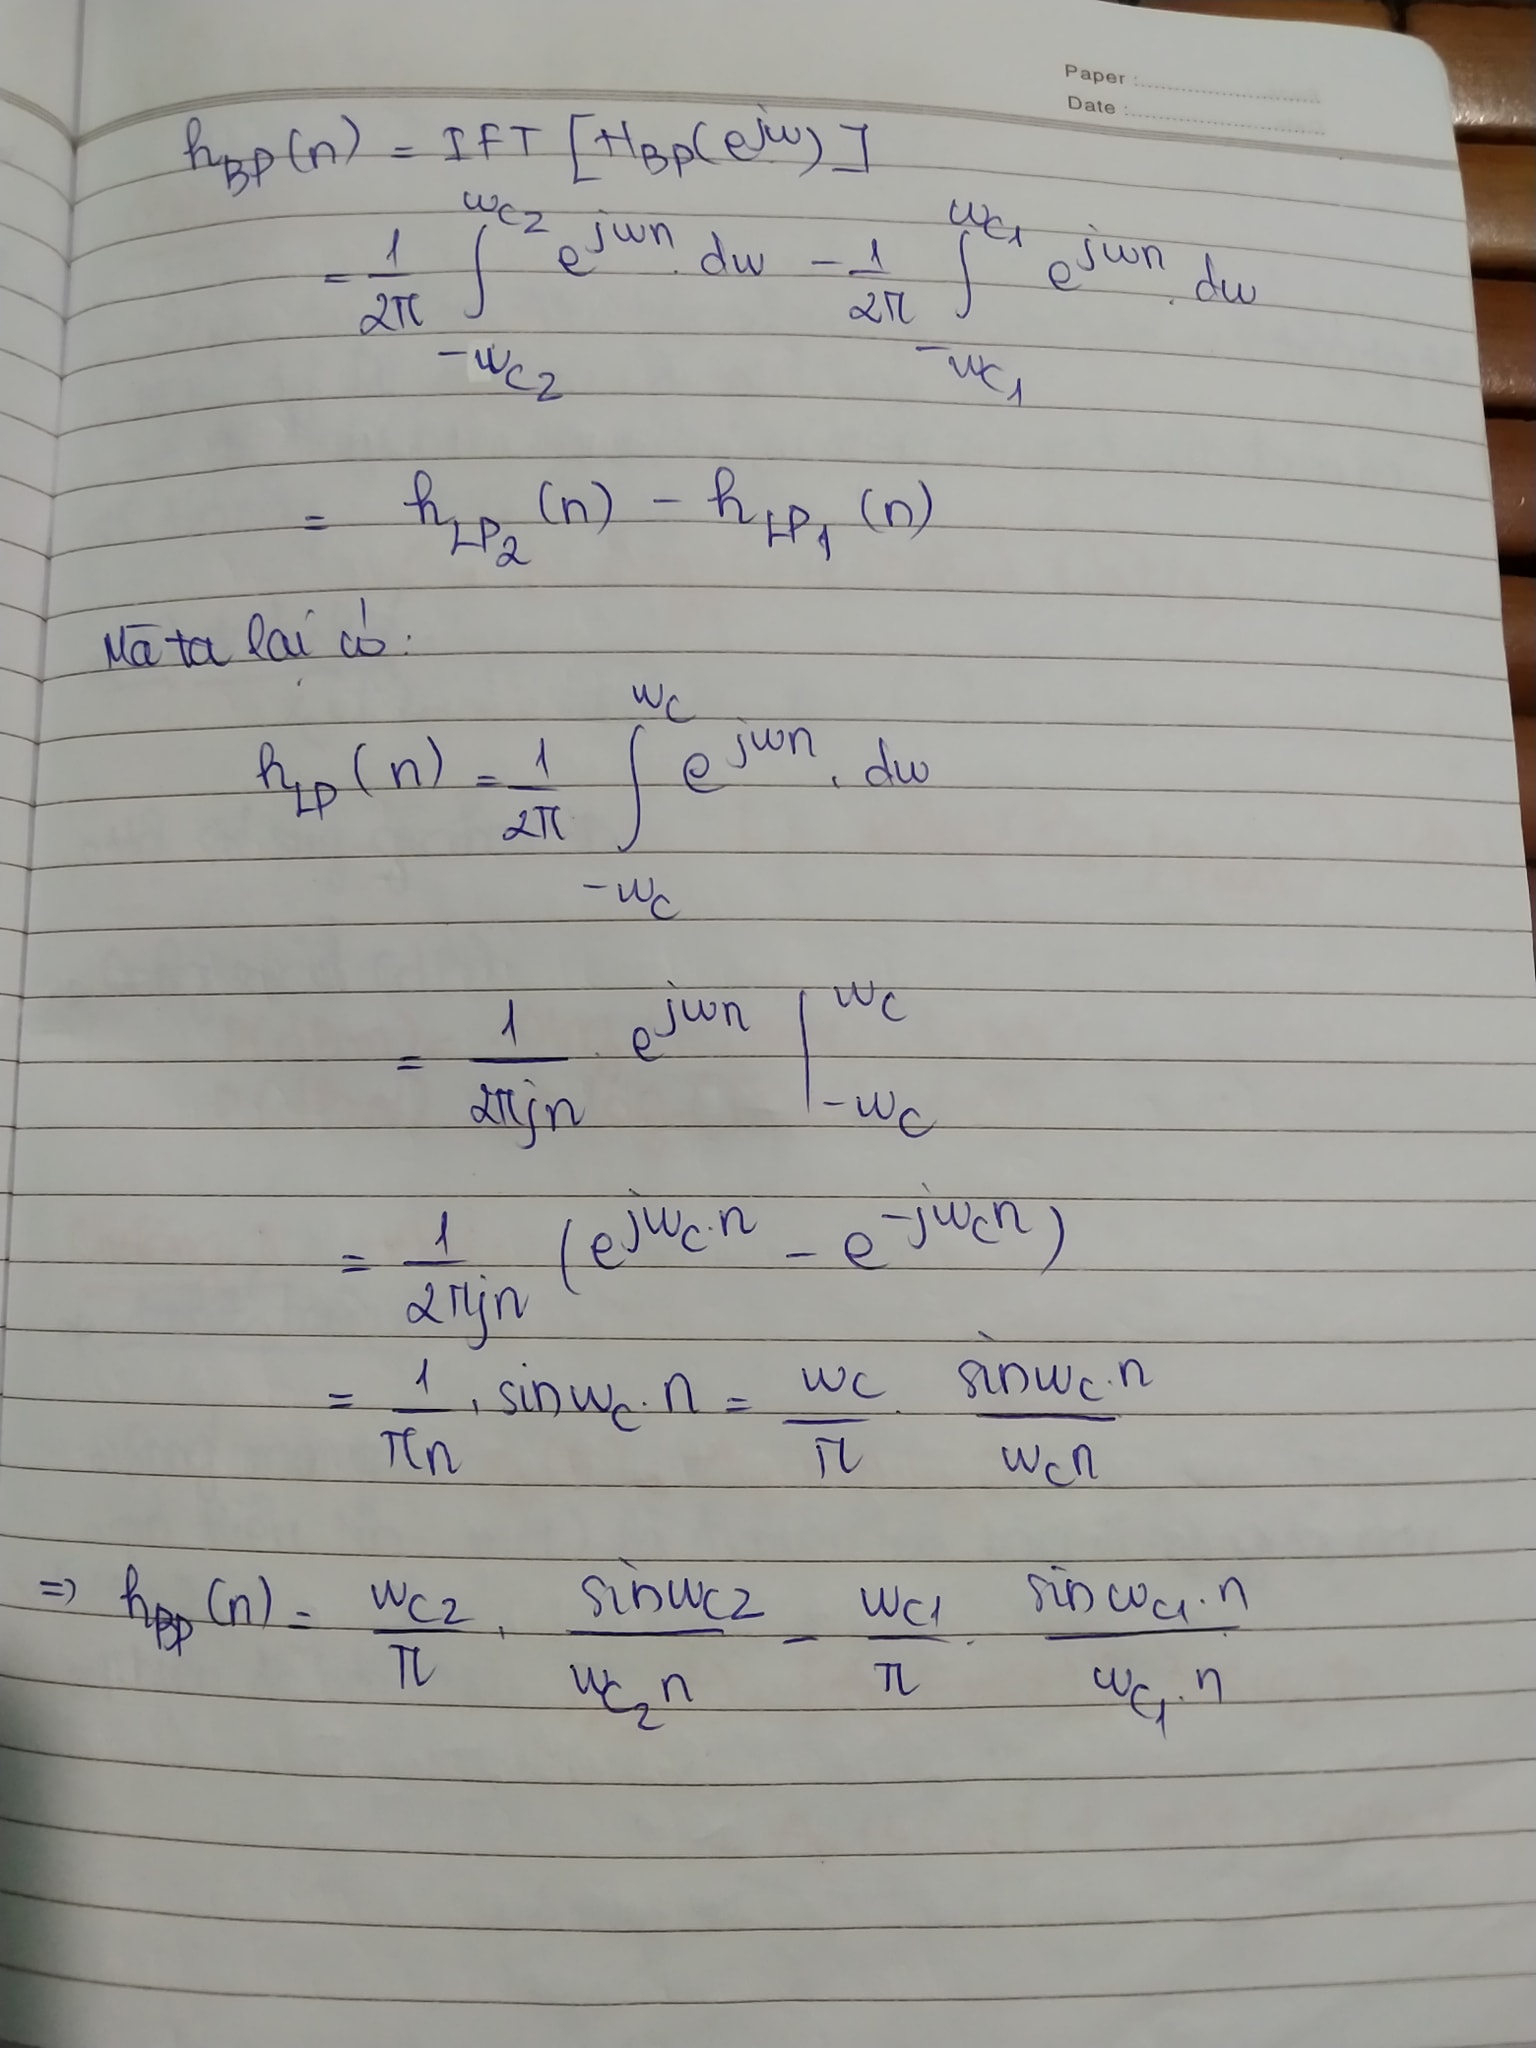 Paper :
Date :
h_BP(n) = IFT [H_BP(e^jω)]
= 1/2π ∫_{-ω_c2}^{ω_c2} e^{jωn}. dω - 1/2π ∫_{-ω_c1}^{ω_c1} e^{jωn}. dω
= h_LP2 (n) - h_LP1 (n)
Mà ta lại có:
h_LP (n) = 1/2π ∫_{-ω_c}^{ω_c} e^{jωn}. dω
= 1/2πjn . e^{jωn} |_{-ω_c}^{ω_c}
= 1/2πjn (e^{jω_c.n} - e^{-jω_c n})
= 1/πn . sinω_c.n = ω_c/π . sinω_c.n/ω_c n
=> h_BP (n) = ω_c2/π . sinω_c2/ω_c2 n - ω_c1/π . sinω_c1.n/ω_c1.n